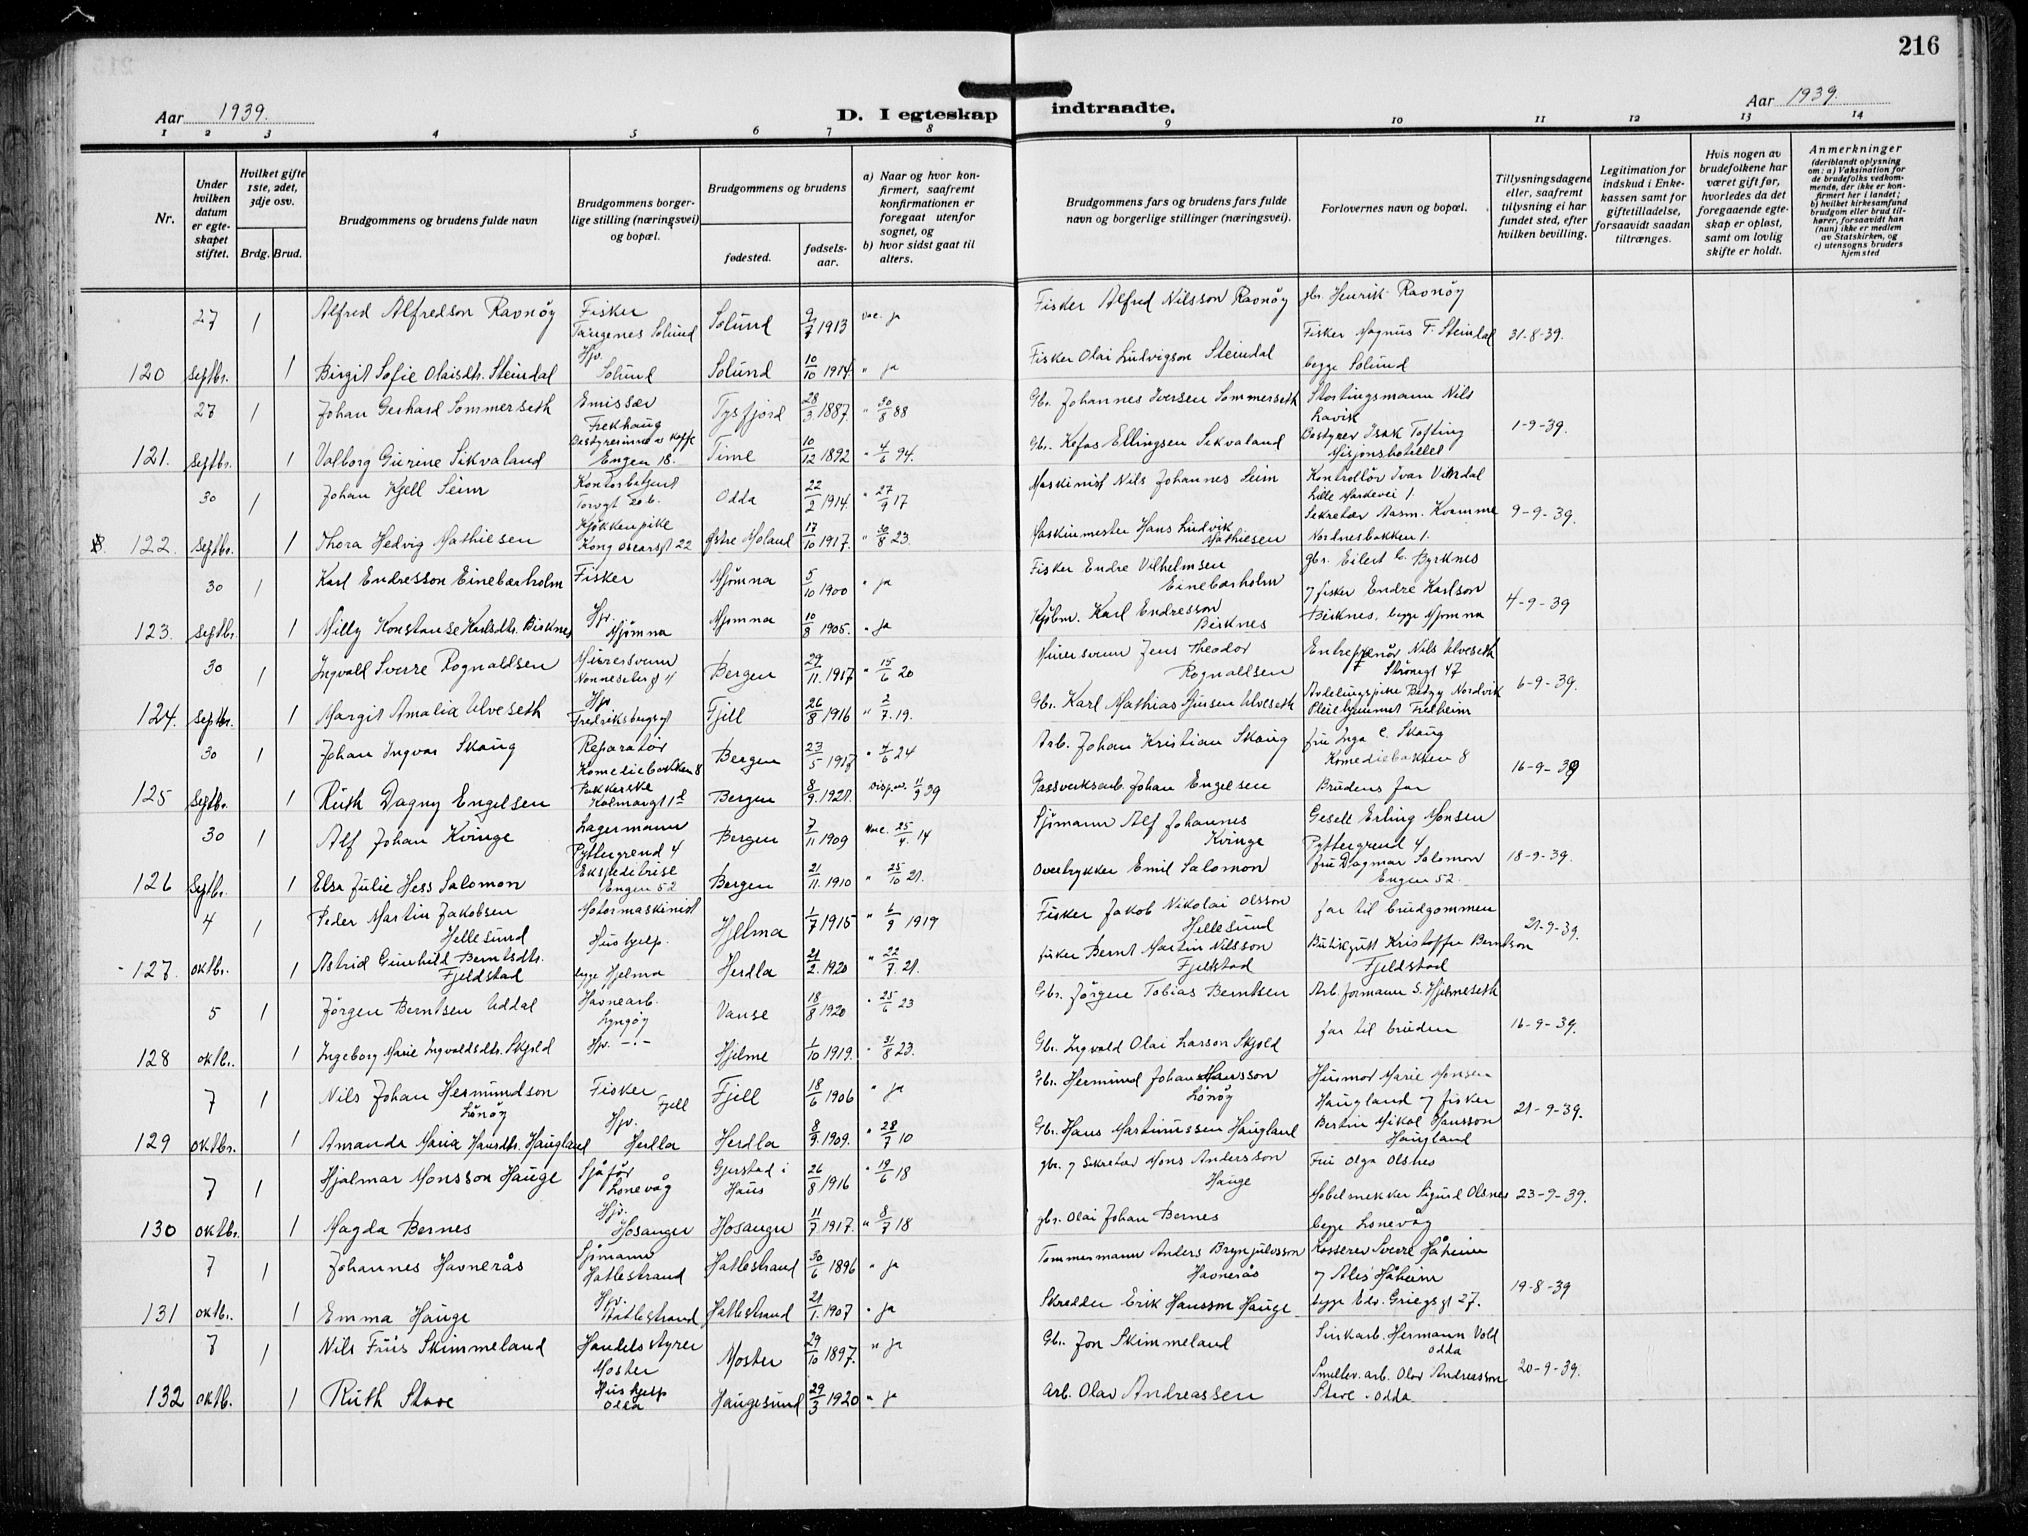 216
Aar 1939.
D. I egteskap indtraadte.
Aar 1939.
1 2 3 4 5 6 7 8 9 10 11 12 13 14
Nr.
Under hvilken datum er egteskapet stiftet.
Hvilket gifte 1ste, 2det, 3dje osv.
Brdg. Brud.
Brudgommens og brudens fulde navn
Brudgommens borgerlige stilling (næringsvei) og bopæl.
Brudgommens og brudens
fødested.
fødselsaar.
a) Naar og hvor konfirmert, saafremt konfirmationen er foregaat utenfor sognet, og
b) hvor sidst gaat til alters.
Brudgommens fars og brudens fars fulde navn og borgerlige stillinger (næringsvei).
Forlovernes navn og bopæl.
Tillysningsdagene eller, saafremt tillysning ei har fundet sted, efter hvilken bevilling.
Legitimation for indskud i Enkekassen samt for giftetilladelse, forsaavidt saadan tiltrænges.
Hvis nogen av brudefolkene har været gift før, hvorledes da det foregaaende egteskap er opløst, samt om lovlig skifte er holdt.
Anmerkninger
(deriblandt oplysning om: a) Vaksination for de brudefolks vedkommende, der ikke er konfirmert her i landet; b) hvilket kirkesamfund brudgom eller brud tilhører, forsaavidt han (hun) ikke er medlem av Statskirken, og c) utensogns bruders hjemsted
27 1 Alfred Alfredson Ravnöy Fisker Tangenes Solund Solund 9/7 1913 vac. ja Fisker Alfred Nilsson Ravnöy gbr. Henrik Ravnöy
Fisker Magnus F. Steindal 31-8-39.
120 Septbr. 1 Birgit Sofie Olaisdtr. Steindal Hjv. Solund Solund 10/10 1914 " ja Fisker Olai Ludvigson Steindal begge Solund
27 1 Johan Gerhard Sommerseth Emissær Frekhaug Tysfjord 28/3 1887. " 30/8 88 Gbr. Johannes Iversen Sommerseth Stortingsmann Nils Lavik
1-9-39.
121. Septbr. 1 Valborg Gurine Sikvaland Bestyrerinne Engen 18. Time 10/12 1892 " 4/6 94. Gbr. Kefas Ellingsen Sikvaland Bestyrer Isak Tofting Misjonshotellet
30 1 Johan Kjell Seim Kontorbetjent Torvgt 20 b. Odda 22/2 1914. " 27/9 17 Maskinist Nils Johannes Seim Kontrollör Ivar Lille Markevei 1.
9-9-39.
122. Septbr. 1 Thora Hedvig Mathiesen Kjøkkenpike Kong Oscarsgt 22 Østre Moland 17/10 1917. " 30/8 23 Maskinmester Hans Ludvik Mathiesen Sekretær Aasm. Kvamme Nordnesbakken 1.
30 1 Karl Endresson Einebærholm Fisker Mjømna 5/10 1900 " ja Fisker Endre Vilhelmsen Einebærholm gbr. Eilert C. Byrknes
4-9-39
123. Septbr. 1 Milly Konstanse Karlsdtr. Birknes Hjv. Mjømna Mjømna 10/8 1905. " ja Kjøbm. Karl Endresson Birknes 7 fisker Endre Karlson Birknes, begge Mjømna
30 1 Ingvald Sverre Rognaldsen Murersvenn Nonnesetergt 4 Bergen 29/11. 1917 " 15/6 20 Murersvenn Jens Theodor Rognaldsen Entreprenör Nils Ulveseth Strömgt 47
6-9-39.
124. Septbr. 1 Margit Amalia Ulveseth Hjv. Fredriksbergsgt Fjell 26/8 1916 " 2/7. 19. Gbr. Karl Mathias Ulveseth Avdelingspike Betzy Nordvik Pleiehjemmet Fredheim
30 1 Johan Ingvar Skaug Reparatør Komediebakken 8 Bergen 23/5 1917 " 4/6 24 Arb. Johan Kristian Skaug fru Inga C. Skaug Komediebakken 8
16-9-39
125 Septbr. 1 Ruth Dagny Engelsen Pakkerske Kalmargt 1 d Bergen 8/9. 1921. Disp.av. 11/9 39 Gassverksarb. Johan Engelsen Brudens far
30 1 Alf Johan Kvinge Lagermann Pyttergrend 4 Bergen 7/11 1909 Vac. 25/4. 14 Sjömann Alf Johannes Kvinge Gesell Erling Monsen Pyttergrend 4
18-9-39.
126 Septbr. 1 Elsa Julie Hess Salomon Ekspeditrise Engen 52 Bergen 21/11. 1910 " 25/10 21. Overtrykker Emil Salomon fru Dagmar Salomon Engen 52.
4 1 Peder Martin Jakobsen Hellesund Motormaskinist Hjelma 1/7 1915 " 6/9 1919 Fisker Jakob Nikolai Olsson Hellesund far til brudgommen
21-9-39.
127. oktbr. 1 Astrid Gunhild Berntsdtr. Fjeldstad Hushjelp. begge Hjelma Herdla 21/2. 1920 " 22/7 21. fisker Bernt Martin Nilsson Fjeldstad Butikgutt Kristoffer Berntson Fjeldstad
5 1 Jørgen Berntsen Uddal Havnearb. Lyngöy Vanse 18/8 1920 " 25/6 23 Gbr. Jørgen Tobias Berntsen Arb. formann S. Hjelmeseth
16-9-39.
128 oktbr. 1 Ingeborg Marie Ingvaldsdtr. Skjold Hjv. -"- Hjelme 1/10 1919. " 31/8 23. Gbr. Ingvald Olai Larson Skjold far til bruden
7 1 Nils Johan Hermundson Lönöy Fisker Fjell Fjell 18/6 1906 " ja Gbr. Hermund Johan Hansson Lönöy Husmor Marie Monsen
21-9-39.
129 oktbr. 1 Amanda Maria Hansdtr. Haugland Hjv. Herdla Herdla 8/9. 1909. " 28/7 10 Gbr. Hans Martinussen Haugland Haugland 7 fisker Bertin Mikal Hansson Haugland
7 1 Hjalmar Monsson Hauge Sjåfør Lonevåg Gjerstad i Haus 26/8 1916 " 19/6 18 gbr. 7 Sekretær Mons Andersson Hauge Fru Olga Olsnes
Møbelsnekker Sigurd Olsnes 23-9-39.
130 oktbr. 1 Magda Bernes Hjv. Hosanger Hosanger 11/7. 1917. " 8/7 18 gbr. Olai Johan Bernes begge Lonevåg
7 1 Johannes Havnerås Sjömann Hatlestrand Hatlestrand 30/6 1896 " ja Tømmermann Anders Brynjulvsson Havnerås Kasserer Sverre Håheim
7 Håheim 19-8-39
131 oktbr. 1 Emma Hauge Hjv. Hatlestrand Hatlestrand 21/1. 1907 " ja Skredder Erik Hansson Hauge begge Edv. Griegsgt 27.
7 1 Nils Friis Skimmeland Handelsstyrer Moster Moster 29/10 1897. " ja Gbr. Jon Skimmeland Sinkarb. Hermann Vold Odda
20-9-39.
132 oktb. 1 Ruth Stave Hushjelp Odda Haugesund 29/3 1920 " ja arb. Olav Andreassen Smeltev. arb. Olav Andreasson Stave Odda